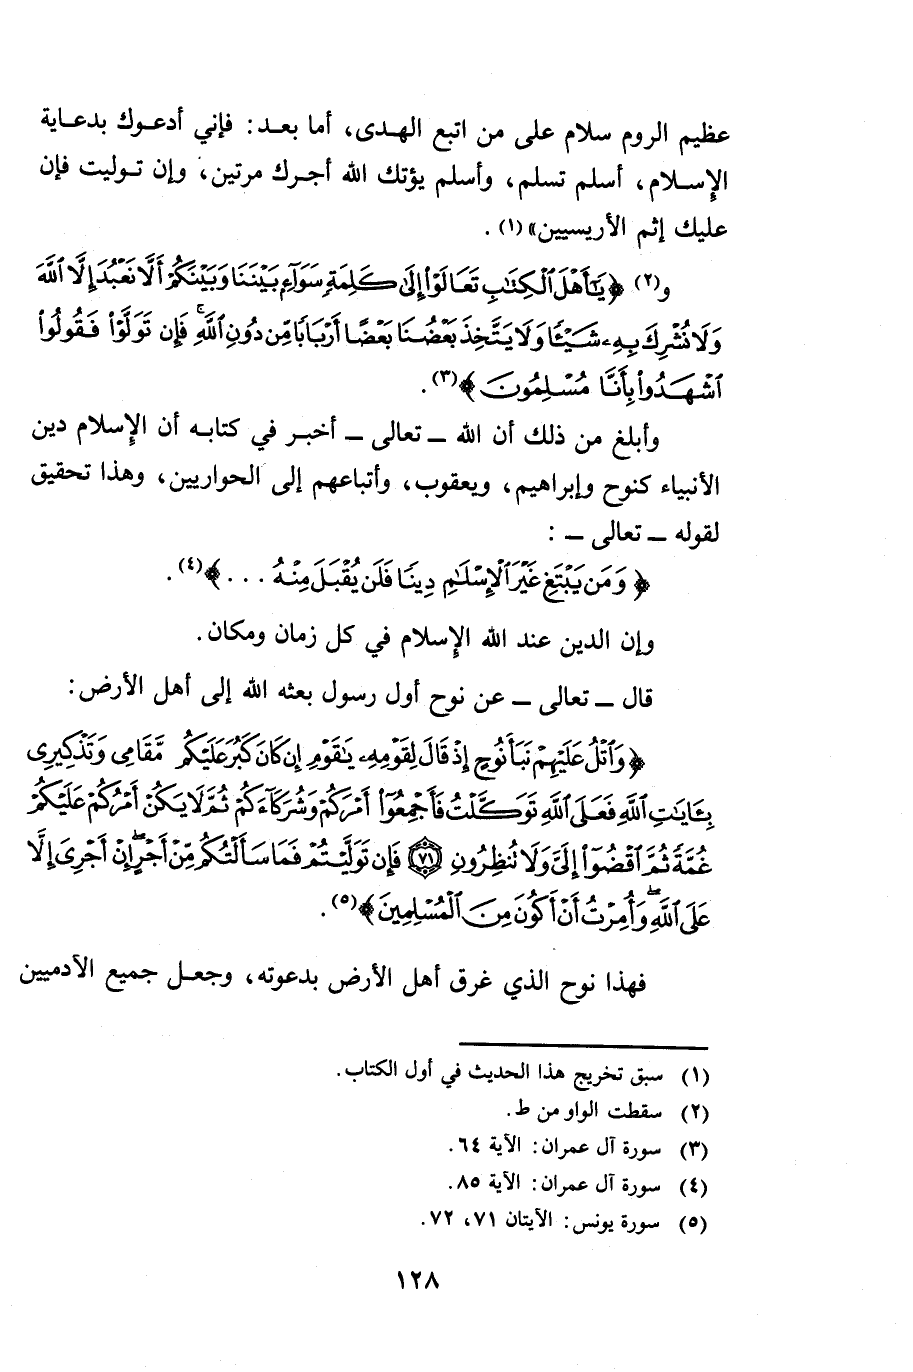 عظيم الروم سلام على من اتبع الهدى، أما بعد: فإني أدعوك بدعاية
الإسلام، أسلم تسلم، وأسلم يؤتك الله أجرك مرتين، وإن توليت فإن
عليك إثم الأريسيين» (١) .
و(٢) ﴿ يَٰٓأَهۡلَ ٱلۡكِتَٰبِ تَعَالَوۡاْ إِلَىٰ كَلِمَةٖ سَوَآءِۭ بَيۡنَنَا وَبَيۡنَكُمۡ أَلَّا نَعۡبُدَ إِلَّا ٱللَّهَ
وَلَا نُشۡرِكَ بِهِۦ شَيۡـٔٗا وَلَا يَتَّخِذَ بَعۡضُنَا بَعۡضًا أَرۡبَابٗا مِّن دُونِ ٱللَّهِۚ فَإِن تَوَلَّوۡاْ فَقُولُواْ
ٱشۡهَدُواْ بِأَنَّا مُسۡلِمُونَ ﴾(٣) .
وأبلغ من ذلك أن الله ــ تعالى ــ أخبر في كتابه أن الإسلام دين
الأنبياء كنوح وإبراهيم، ويعقوب، وأتباعهم إلى الحواريين، وهذا تحقيق
لقوله ــ تعالى ــ :
﴿ وَمَن يَبۡتَغِ غَيۡرَ ٱلۡإِسۡلَٰمِ دِينٗا فَلَن يُقۡبَلَ مِنۡهُ . . . ﴾(٤) .
وإن الدين عند الله الإسلام في كل زمان ومكان.
قال ــ تعالى ــ عن نوح أول رسول بعثه الله إلى أهل الأرض:
﴿ وَٱتۡلُ عَلَيۡهِمۡ نَبَأَ نُوحٍ إِذۡ قَالَ لِقَوۡمِهِۦ يَٰقَوۡمِ إِن كَانَ كَبُرَ عَلَيۡكُم مَّقَامِي وَتَذۡكِيرِي
بِـَٔايَٰتِ ٱللَّهِ فَعَلَى ٱللَّهِ تَوَكَّلۡتُ فَأَجۡمِعُوٓاْ أَمۡرَكُمۡ وَشُرَكَآءَكُمۡ ثُمَّ لَا يَكُنۡ أَمۡرُكُمۡ عَلَيۡكُمۡ
غُمَّةٗ ثُمَّ ٱقۡضُوٓاْ إِلَيَّ وَلَا تُنظِرُونِ ٧١ فَإِن تَوَلَّيۡتُمۡ فَمَا سَأَلۡتُكُم مِّنۡ أَجۡرٍۖ إِنۡ أَجۡرِيَ إِلَّا
عَلَى ٱللَّهِۖ وَأُمِرۡتُ أَنۡ أَكُونَ مِنَ ٱلۡمُسۡلِمِينَ ﴾(٥) .
فهذا نوح الذي غرق أهل الأرض بدعوته، وجعل جميع الآدميين
(١) سبق تخريج هذا الحديث في أول الكتاب.
(٢) سقطت الواو من ط.
(٣) سورة آل عمران: الآية ٦٤.
(٤) سورة آل عمران: الآية ٨٥.
(٥) سورة يونس: الآيتان ٧١، ٧٢.
١٢٨